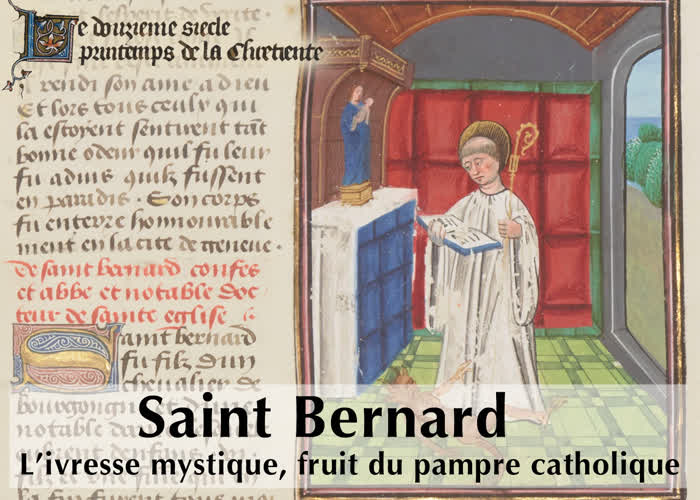 Le douzieme siecle
printemps de la Chretiente
rendi son ame a dieu
Et lors tous ceulx qui
la estoyent sentirent tãt
bonne odeur quil fu leur
fu aduis quilz fussent
en paradis . Son corps
fu enterre honnourable
ment en la cite de geneue .
De saint bernard confes
et abbe et notable doc
teur de sainte eglise
Saint bernard
fu filz dun
cheualier de
bourgongne et
notable
Saint Bernard
L’ivresse mystique, fruit du pampre catholique